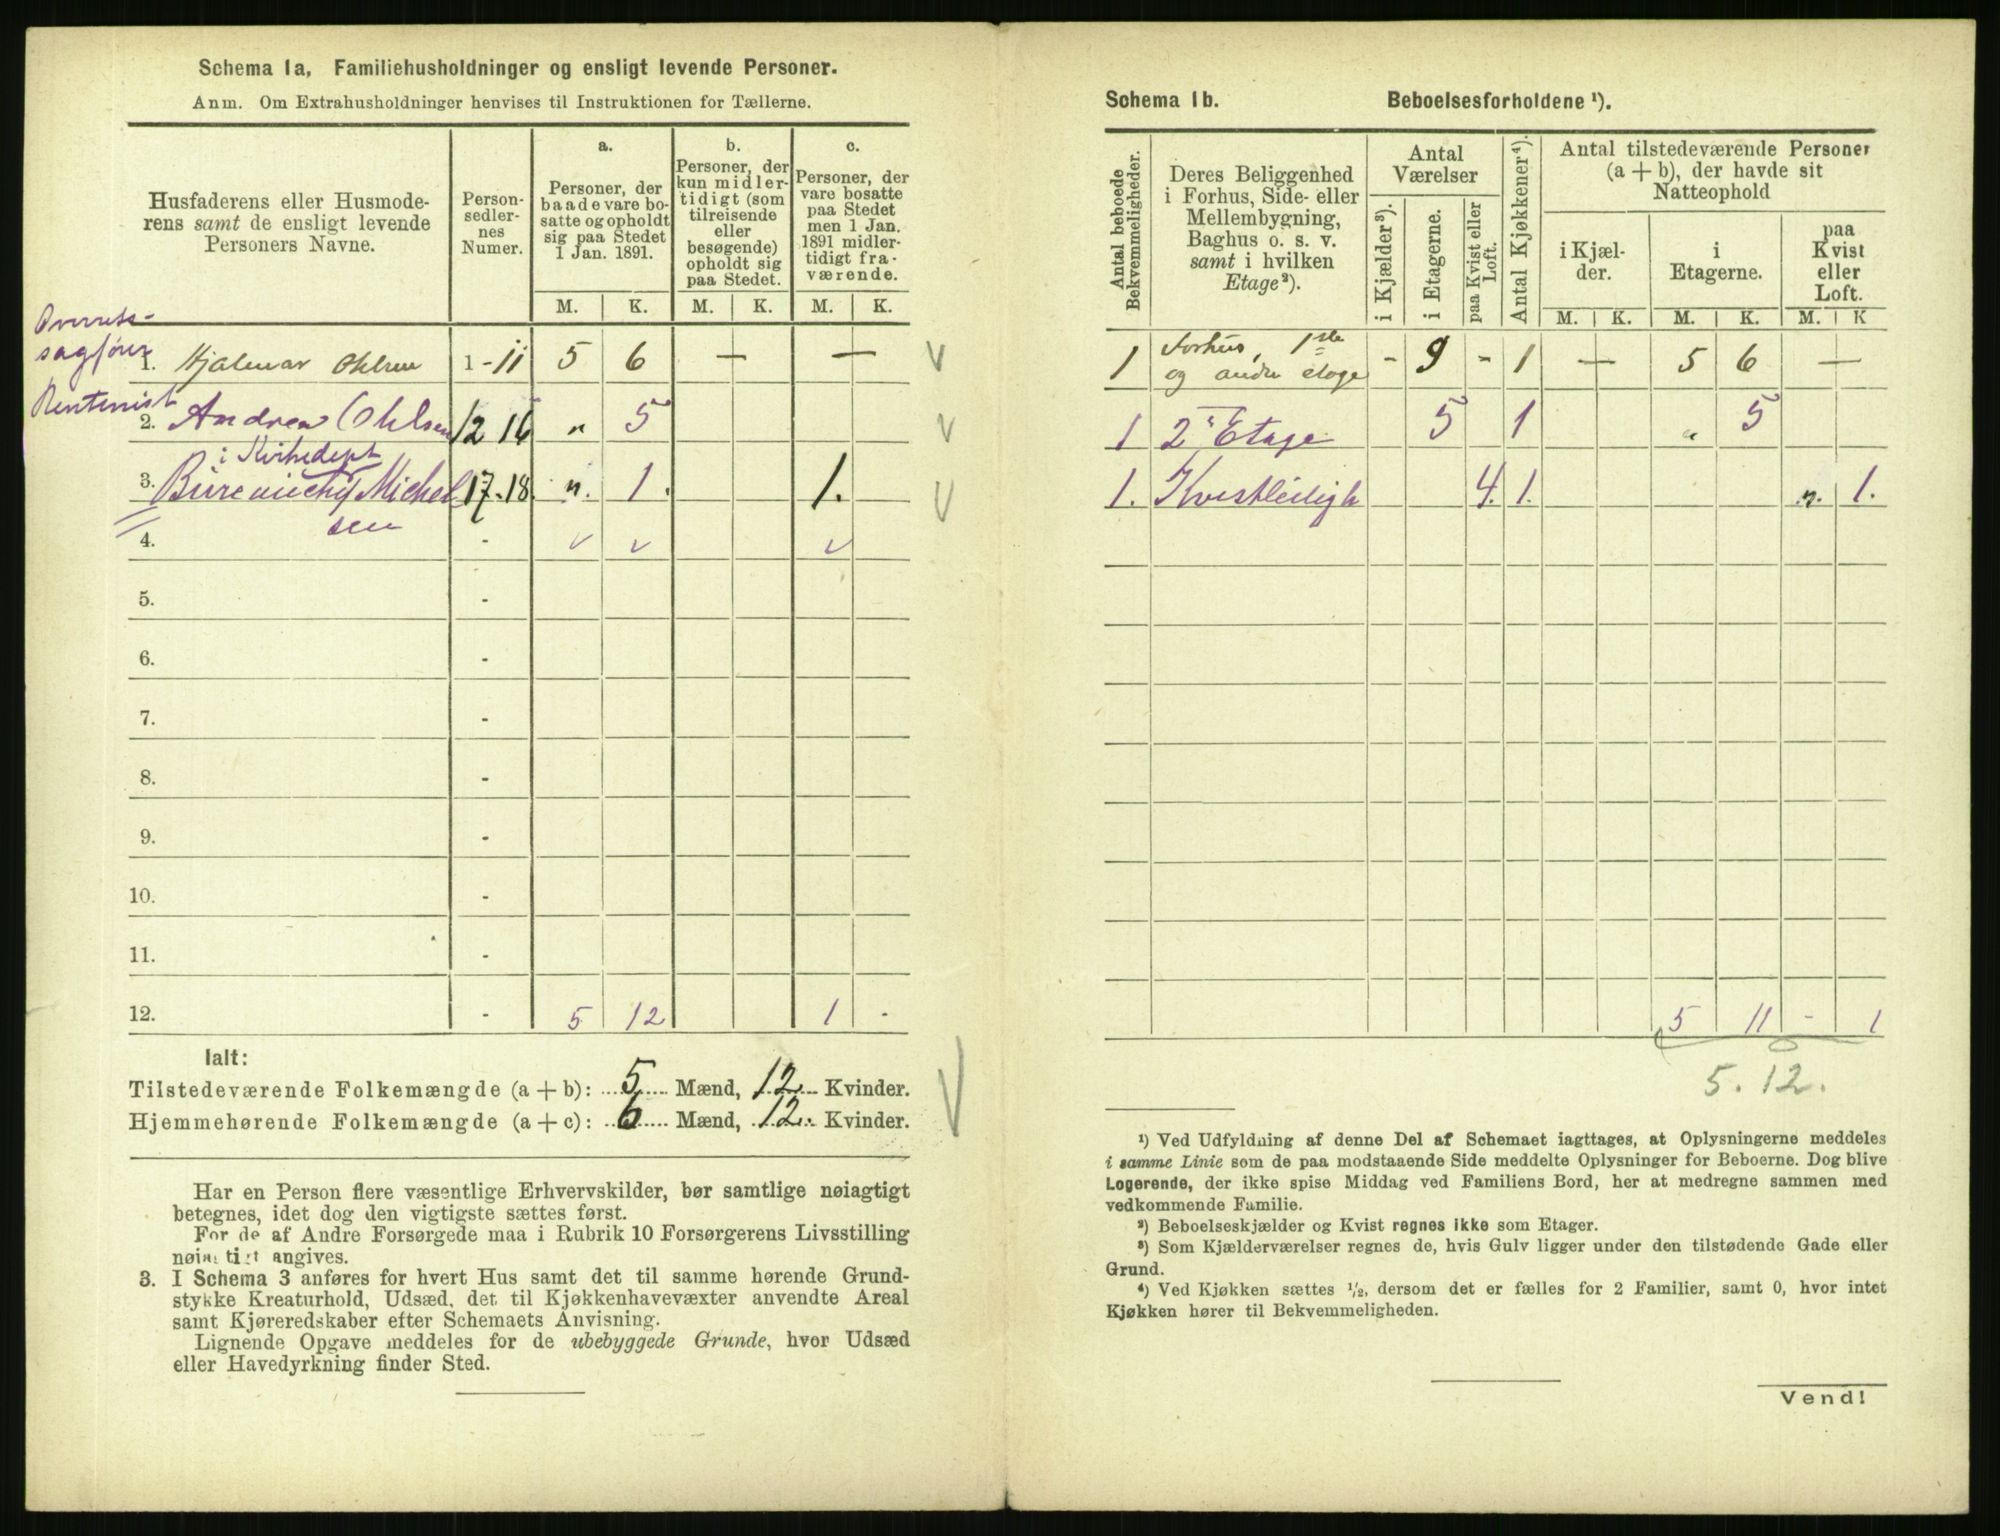 Schema 1a, Familiehusholdninger og ensligt levende Personer.
Anm. Om Extrahusholdninger henvises til Instruktionen for Tællerne.
Husfaderens eller Husmode-
rens samt de ensligt levende
Personers Navne.
Person-
sedler-
nes
Numer.
a.
Personer, der
baade vare bo-
satte og opholdt
sig paa Stedet
1 Jan. 1891.
b.
Personer, der
kun midler-
tidigt (som
tilreisende
eller
besøgende)
opholdt sig
paa Stedet.
c.
Personer, der
vare bosatte
paa Stedet
men 1 Jan.
1891 midler-
tidigt fra-
værende.
M. K. M. K. M. K.
Overrets-
sagfører
1. Hjalmar Ohlsen 1 - 11 5 6 — —
Rentenist
2. Andrea Ohlsen 12 16 " 5
i Kirkedept
3. Michel 17 - 18 ". 1. 1.
sen
4. -
5. -
6. -
7. -
8. -
9. -
10. -
11. -
12. - 5 12 1 -
Ialt:
Tilstedeværende Folkemængde (a + b): 5 Mænd, 12 Kvinder.
Hjemmehørende Folkemængde (a + c): 6 Mænd, 12. Kvinder.
Har en Person flere væsentlige Erhvervskilder, bør samtlige nøiagtigt
betegnes, idet dog den vigtigste sættes først.
For de af Andre Forsørgede maa i Rubrik 10 Forsørgerens Livsstilling
nøiagtigt angives.
3. I Schema 3 anføres for hvert Hus samt det til samme hørende Grund-
stykke Kreaturhold, Udsæd, det til Kjøkkenhavevæxter anvendte Areal
samt Kjøreredskaber efter Schemaets Anvisning.
Lignende Opgave meddeles for de ubebyggede Grunde, hvor Udsæd
eller Havedyrkning finder Sted.
Schema 1b. Beboelsesforholdene ¹).
Antal beboede
Bekvemmeligheder.
Deres Beliggenhed
i Forhus, Side- eller
Mellembygning,
Baghus o. s. v.
samt i hvilken
Etage²).
Antal
Værelser
i Kjælder³).
i Etagerne.
paa Kvist eller
Loft.
Antal Kjøkkener⁴).
Antal tilstedeværende Personer
(a + b), der havde sit
Natteophold
i Kjæl-
der.
i
Etagerne.
paa
Kvist
eller
Loft.
M. K. M. K. M. K
1 Forhus, 1ste
og anden etage - 9 - 1 — 5 6 —
1 2 Etage 5 1 " 5
1. Kvistleiligh 4. 1. ". 1.
5 11 - 1
5. 12.
¹) Ved Udfyldning af denne Del af Schemaet iagttages, at Oplysningerne meddeles
i samme Linie som de paa modstaaende Side meddelte Oplysninger for Beboerne. Dog blive
Logerende, der ikke spise Middag ved Familiens Bord, her at medregne sammen med
vedkommende Familie.
²) Beboelseskjælder og Kvist regnes ikke som Etager.
³) Som Kjælderværelser regnes de, hvis Gulv ligger under den tilstødende Gade eller
Grund.
⁴) Ved Kjøkken sættes ½, dersom det er fælles for 2 Familier, samt 0, hvor intet
Kjøkken hører til Bekvemmeligheden.
Vend!